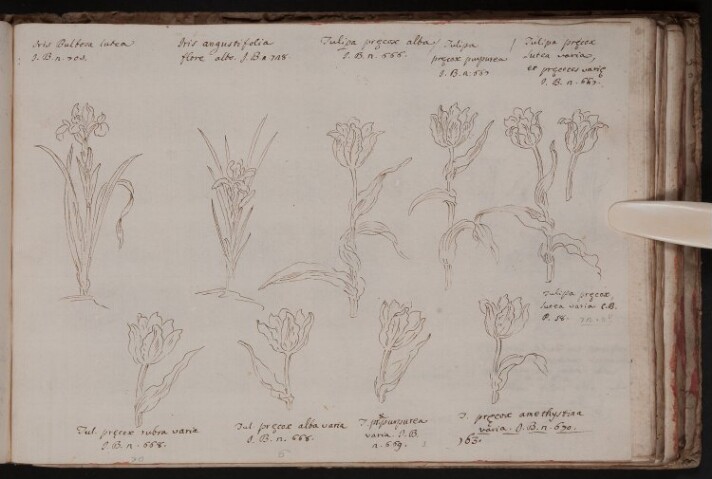 Iris Bulbosa lutea
I. B. n. 703.
Iris angustifolia
flore albo. I. B. n 708
Tulipa pręcox alba
I. B. n. 666.
Tulipa
pręcox purpurea
I. B. n. 667
Tulipa pręcox
lutea varia,
et pręcoces varię
I. B. n. 667.
Tulipa pręcox,
lutea varia C.B.
P. 58.
Tul. pręcox rubra varia
I. B. n. 668.
Tul pręcox alba varia
I. B. n. 668.
T. purpurea
varia. I. B.
n. 669.
T. pręcox amethystina
varia. I. B. n. 670.